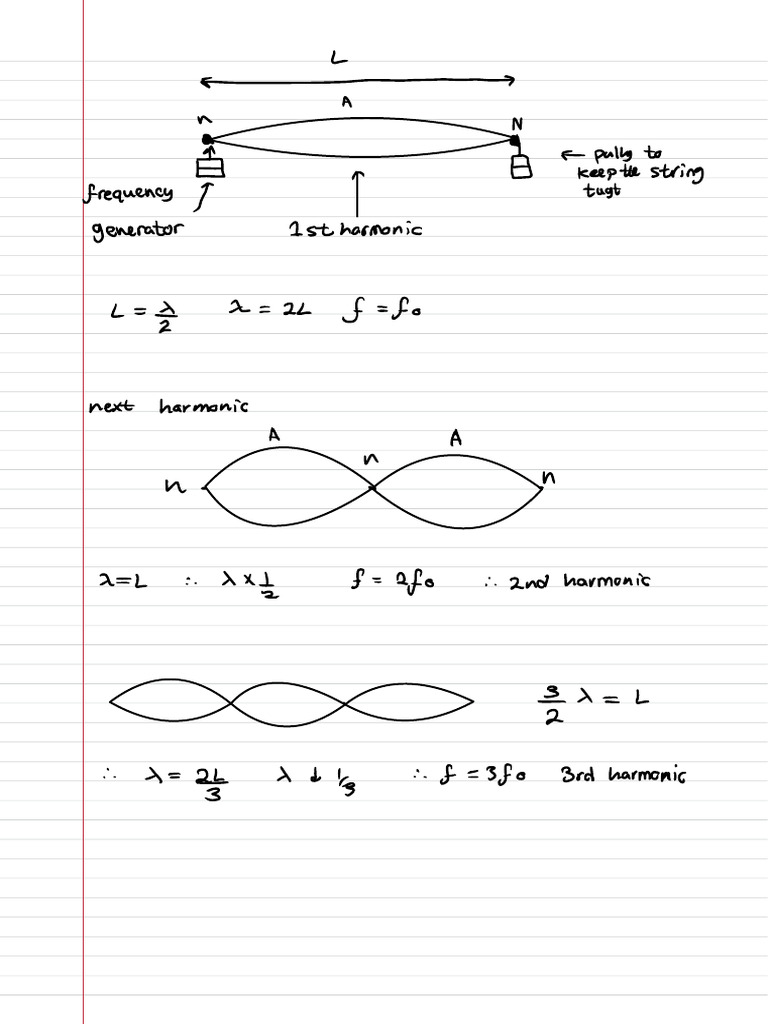 L
A
n N
← pully to
keep the string
tugt
frequency
generator
1st harmonic
L = λ/2 λ = 2L f = f₀
next harmonic
A A
n n n
λ=L ∴ λ × 1/2 f = 2f₀ ∴ 2nd harmonic
3/2 λ = L
∴ λ = 2L/3 λ ↓ 1/3 ∴ f = 3f₀ 3rd harmonic